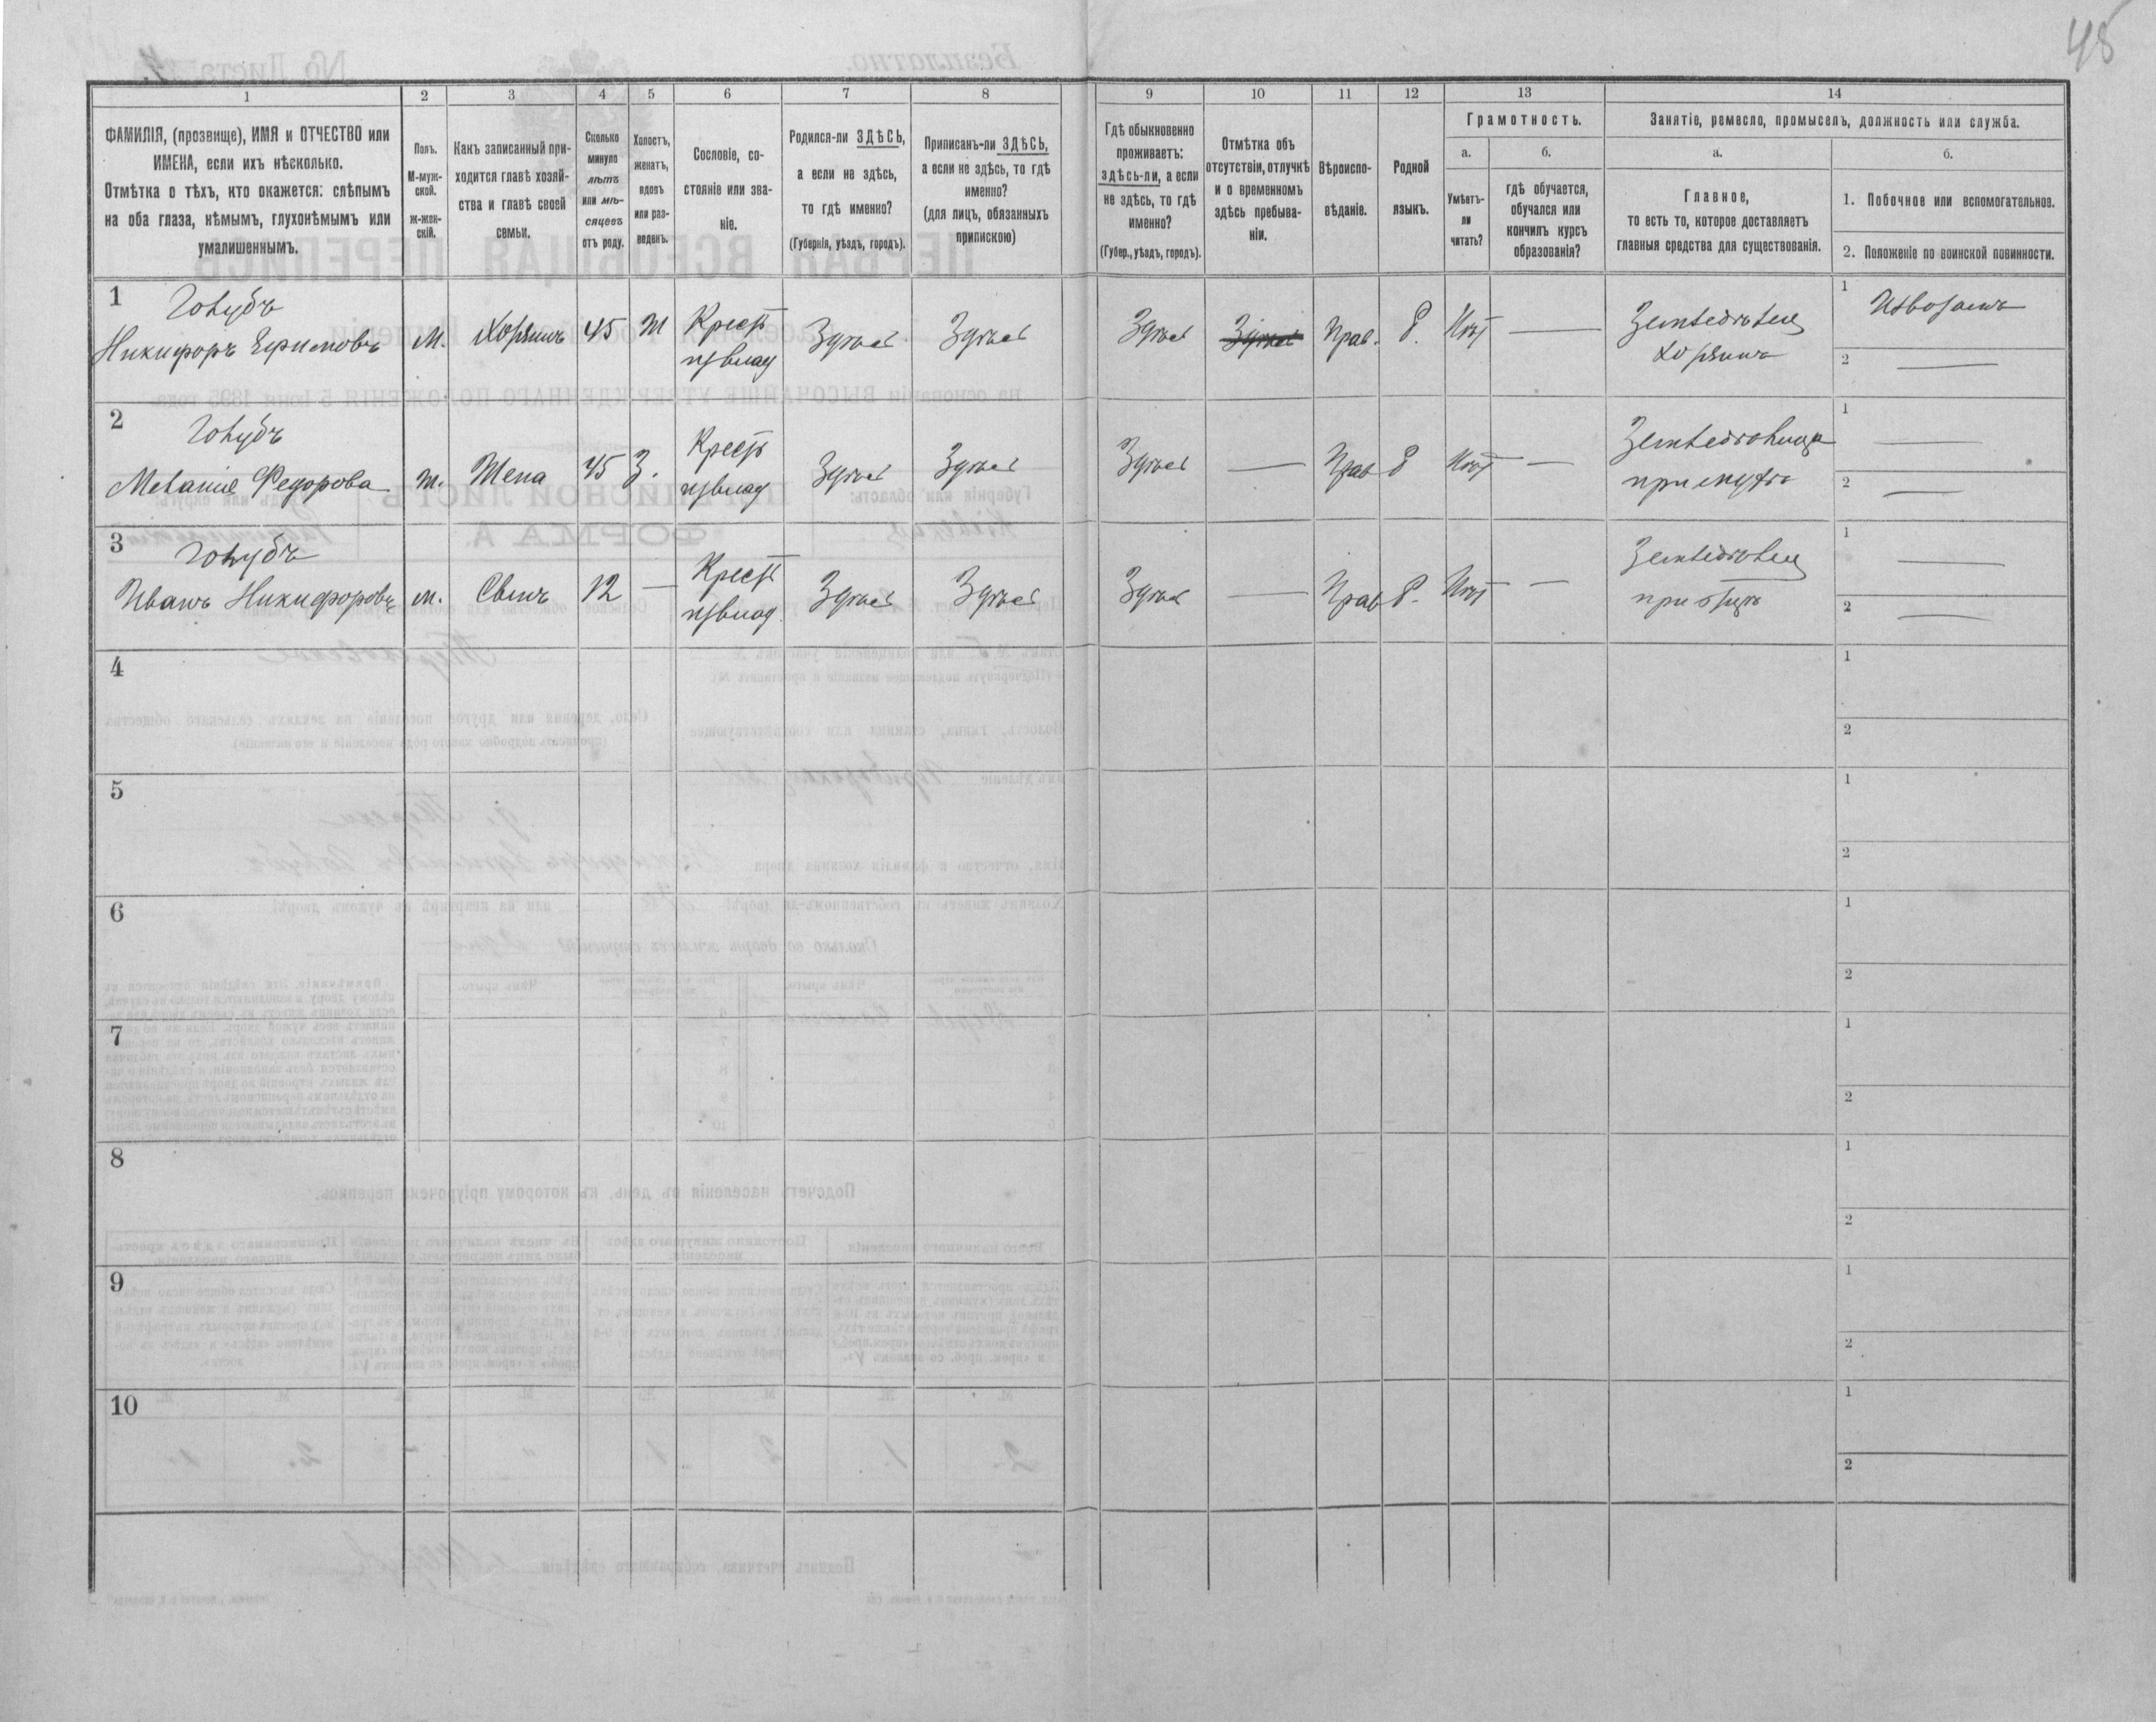 45
1
2
3
4
5
6
7
8
9
10
11
12
13
14
ФАМИЛІЯ, (прозвище), ИМЯ и ОТЧЕСТВО или
ИМЕНА, если ихъ нѣсколько.
Отмѣтка о тѣхъ, кто окажется: слѣпымъ
на оба глаза, нѣмымъ, глухонѣмымъ или
умалишеннымъ.
Полъ.
М-муж-
ской.
ж-жен-
скій.
Какъ записанный при-
ходится главѣ хозяй-
ства и главѣ своей
семьи.
Сколько
минуло
лѣтъ
или мѣ-
сяцевъ
отъ роду.
Холостъ,
женатъ,
вдовъ
или раз-
веденъ.
Сословіе, со-
стояніе или зва-
ніе.
Родился-ли ЗДѢСЬ,
а если не здѣсь,
то гдѣ именно?
(Губернія, уѣздъ, городъ).
Приписанъ-ли ЗДѢСЬ,
а если не здѣсь, то гдѣ
именно?
(для лицъ, обязанныхъ
припискою)
Гдѣ обыкновенно
проживаетъ:
здѣсь-ли, а если
не здѣсь, то гдѣ
именно?
(Губер., уѣздъ, городъ).
Отмѣтка объ
отсутствіи, отлучкѣ
и о временномъ
здѣсь пребыва-
ніи.
Вѣроиспо-
вѣданіе.
Родной
языкъ.
Грамотность.
а.
б.
Умѣетъ-
ли
читать?
гдѣ обучается,
обучался или
кончилъ курсъ
образованія?
Занятіе, ремесло, промыселъ, должность или служба.
а.
б.
Главное,
то есть то, которое доставляетъ
главныя средства для существованія.
1. Побочное или вспомогательное.
2. Положеніе по воинской повинности.
1
Голубъ
Никифоръ Ефимовъ
М.
Хозяинъ
45
Ж
Крест
изъ влад
Здѣсь
Здѣсь
Здѣсь
Здѣсь
Прав.
Р.
Нѣтъ
Земледѣлец
Хозяинъ
1
Извозомъ
2
2
Голубъ
Меланія Федорова
Ж.
Жена
45
З.
Крест
изъ влад
Здѣсь
Здѣсь
Здѣсь
Прав
Р
Нѣтъ
Земледѣлица
при мужѣ
1
2
3
Голубъ
Иванъ Никифоровъ
М.
Сынъ
12
Крест
изъ влад
Здѣсь
Здѣсь
Здѣсь
Прав
Р.
Нѣтъ
Земледѣлец
при отцѣ
1
2
4
1
2
5
1
2
6
1
2
7
1
2
8
1
2
9
1
2
10
1
2